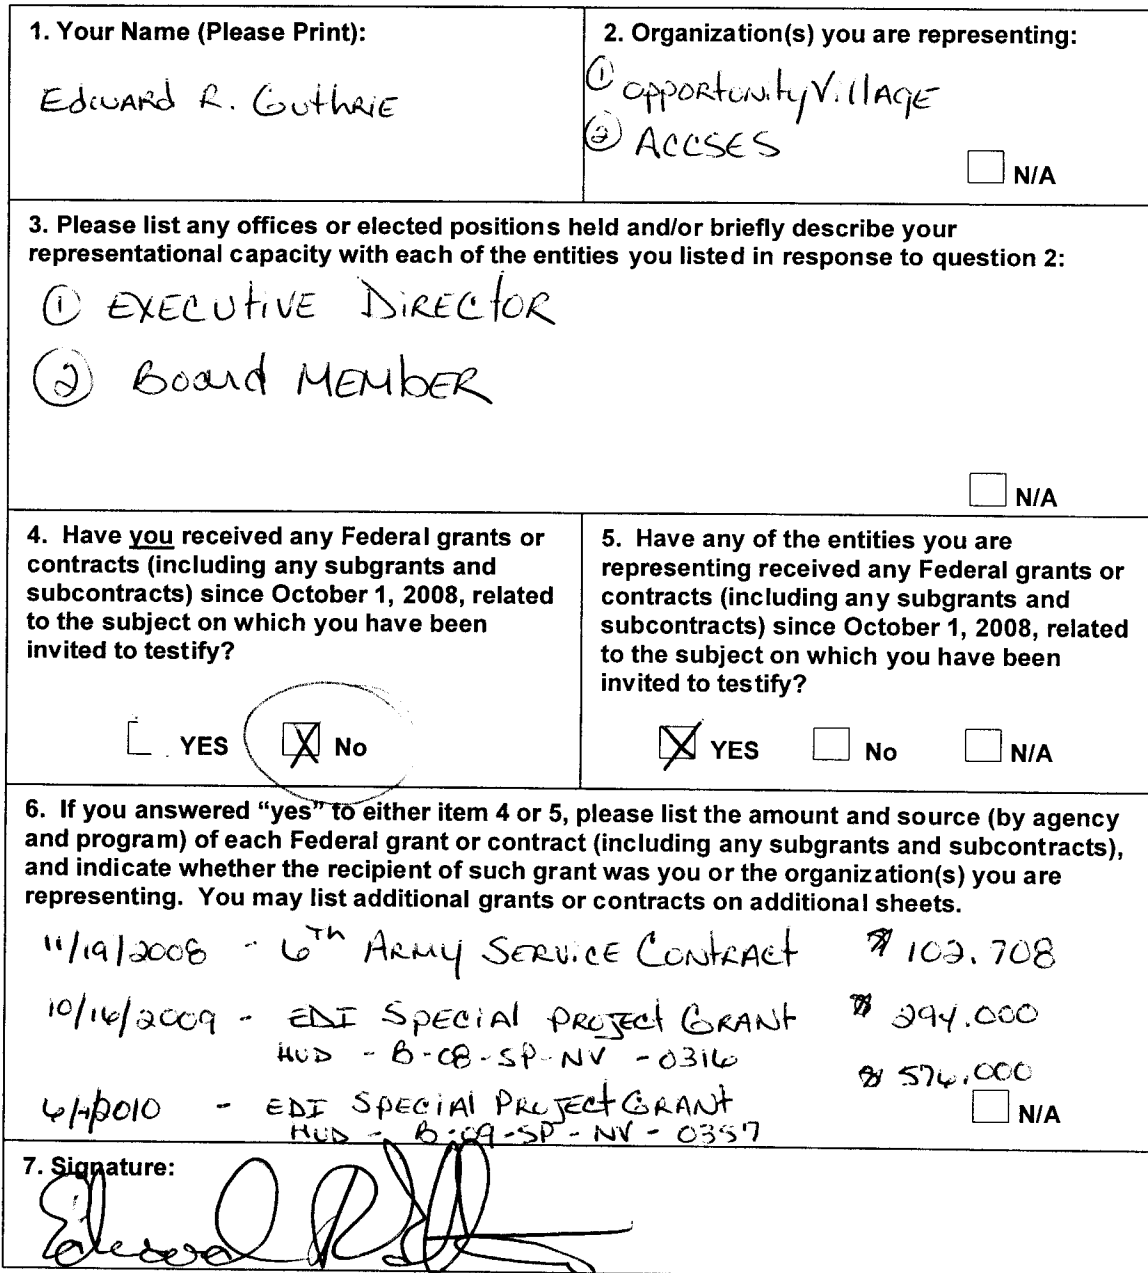 1. Your Name (Please Print):
Edward R. Guthrie
2. Organization(s) you are representing:
① Opportunity Village
② ACCSES
N/A
3. Please list any offices or elected positions held and/or briefly describe your
representational capacity with each of the entities you listed in response to question 2:
① Executive Director
② Board Member
N/A
4. Have you received any Federal grants or
contracts (including any subgrants and
subcontracts) since October 1, 2008, related
to the subject on which you have been
invited to testify?
YES No
5. Have any of the entities you are
representing received any Federal grants or
contracts (including any subgrants and
subcontracts) since October 1, 2008, related
to the subject on which you have been
invited to testify?
YES No N/A
6. If you answered “yes” to either item 4 or 5, please list the amount and source (by agency
and program) of each Federal grant or contract (including any subgrants and subcontracts),
and indicate whether the recipient of such grant was you or the organization(s) you are
representing. You may list additional grants or contracts on additional sheets.
11/19/2008 - 6th Army Service Contract $102.708
10/16/2009 - EDI Special Project Grant $294.000
HUD - B-08-SP-NV-0316
- EDI Special Project Grant $576.000
HUD - B-09-SP-NV-0357
N/A
7. Signature: